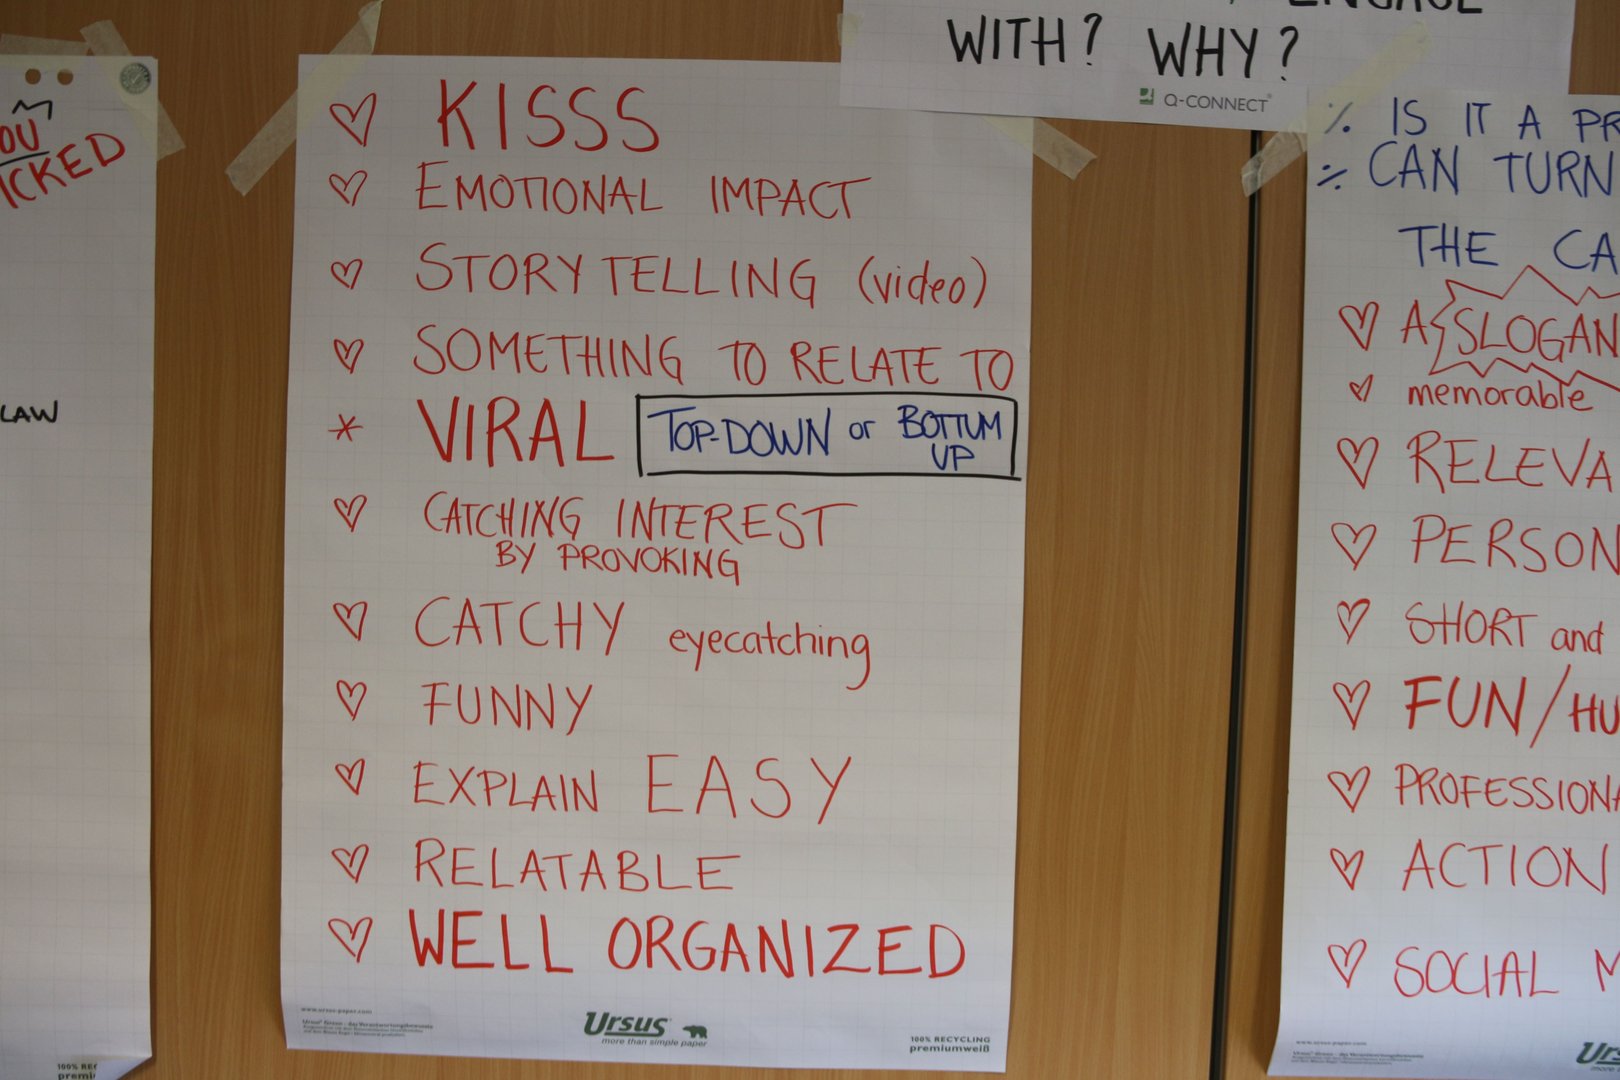 OU
ICKED
LAW
100% REC
premi
KISSS
EMOTIONAL IMPACT
STORYTELLING (video)
SOMETHING TO RELATE TO
VIRAL TOP-DOWN or BOTTUM UP
CATCHING INTEREST
BY PROVOKING
CATCHY eyecatching
FUNNY
EXPLAIN EASY
RELATABLE
WELL ORGANIZED
www.ursus-paper.com
Ursus
more than simple paper
100% RECYCLING
premiumweiß
ENGAGE
WITH? WHY?
Q-CONNECT
IS IT A PR
CAN TURN
THE CA
A SLOGAN
memorable
RELEVA
PERSON
SHORT and
FUN/HU
PROFESSIONA
ACTION
SOCIAL M
www.ursus-paper.com
Urs
more